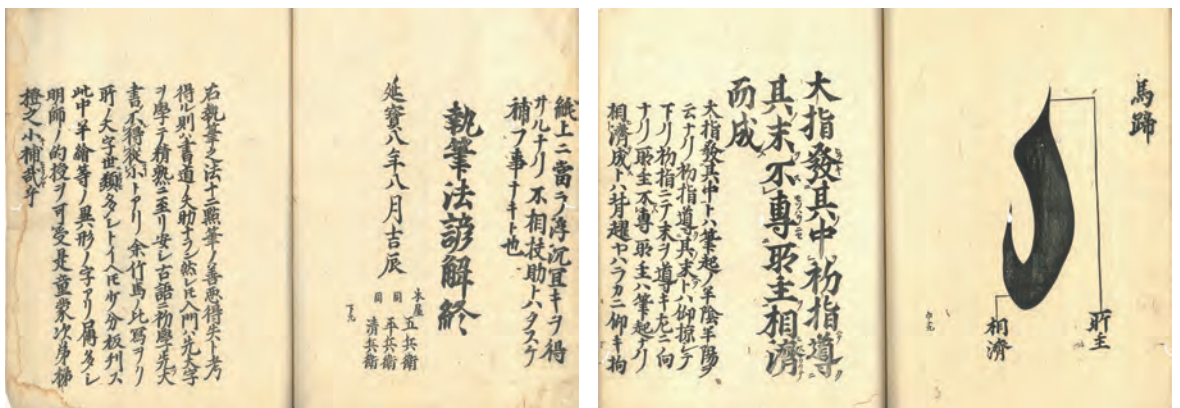 馬蹄
所主
相濟
大指發其中初指導
其末不專所主相濟
而成
大指發其中トハ筆起ノ半陰半陽ヲ
云ナリ初指導其末トハ仰掠シテ
下リ初指ニテ末ヲ導キ左ニ向
ナリ所主不專所主ハ筆起ナリ
相濟成トハ趯ヤハラカニ仰キ拘
紙上ニ當ラ浮沉宜キヲ得
サルナリ不相扶助トハタスケ
補フ事ナキト也
執筆法諺解終
延寶八年八月吉辰
本屋 五兵衛
同 平兵衛
同 清兵衛
右執筆之法十二點筆ノ善惡得失ト考
得ル則ハ書道ノ大助ナラン然レ𪜈入門ハ先大字
ヲ學テ精熟ニ至リ安シ古語ニ初學先大
書不得從小トアリ余竹馬ノ比寫ヲリ
所ノ大字世類多シトイヘ𪜈少分板刊ス
此中半繪等ノ異形ノ字アリ屬多シ
明師ノ的授ヲ可受是童蒙次第梯
橙之小補哉乎